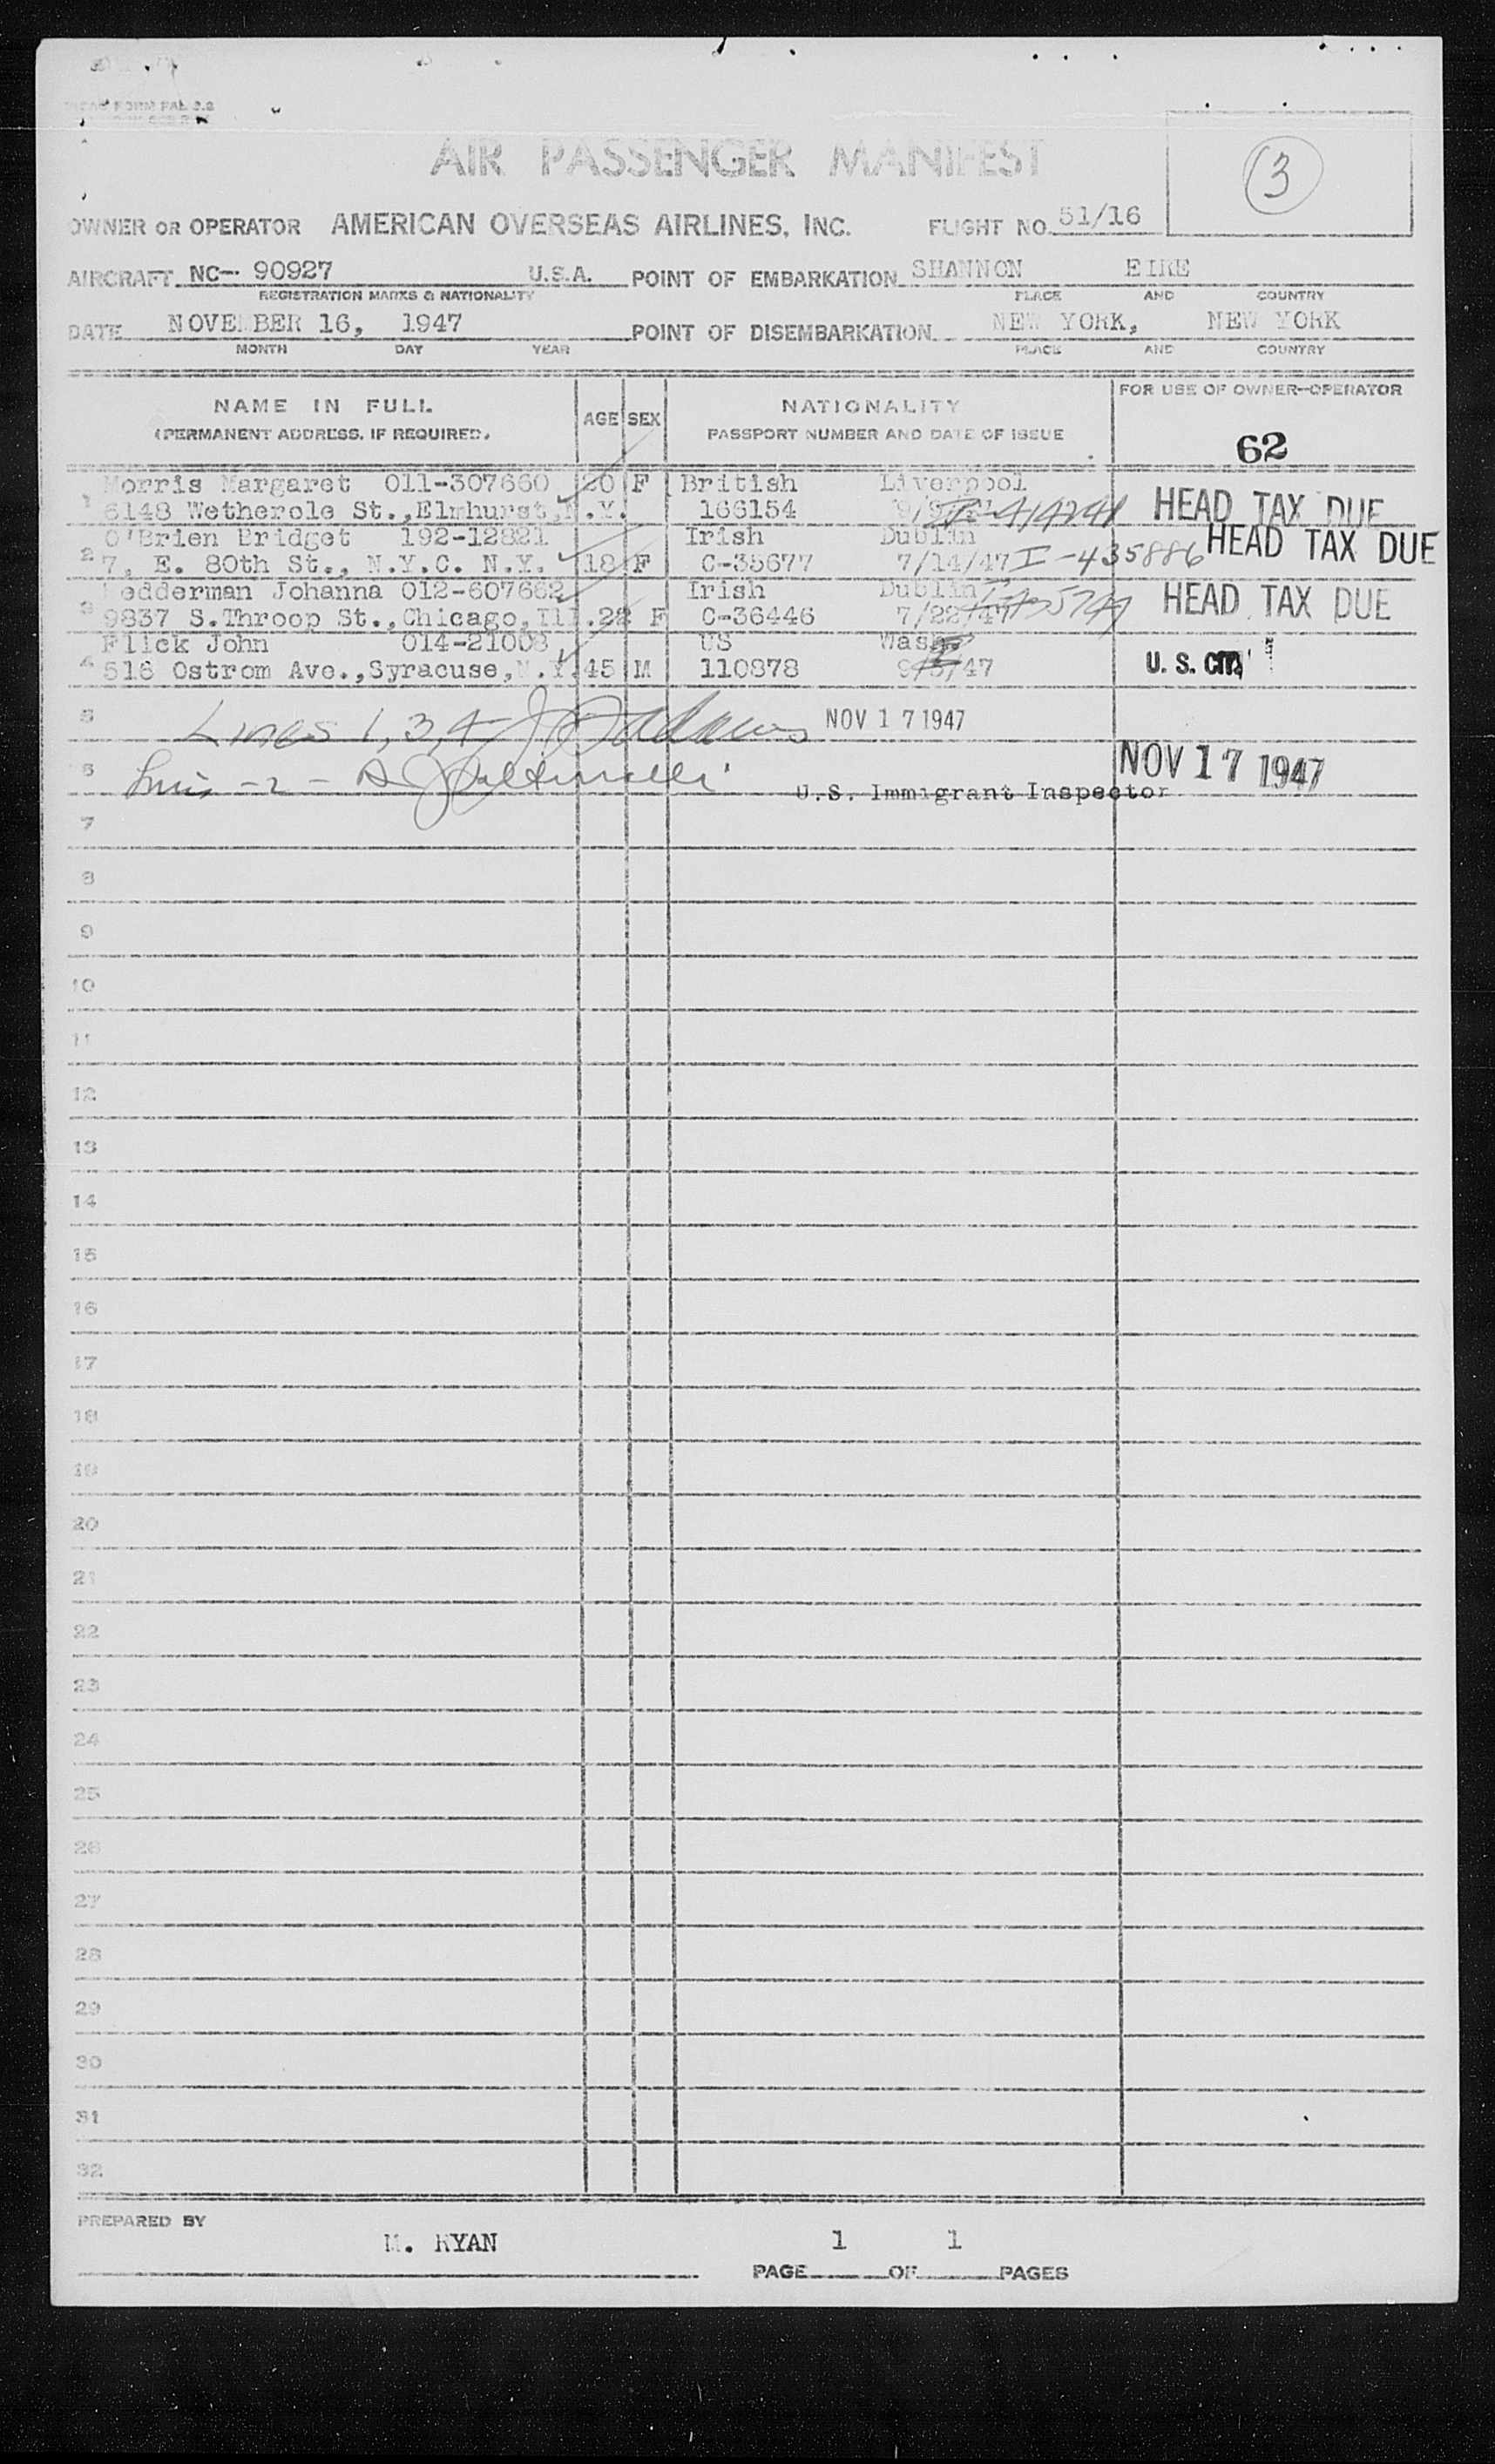 FORM PAL 2.2
AIR PASSENGER MANIFEST
3
OWNER OR OPERATOR AMERICAN OVERSEAS AIRLINES, INC. FLIGHT NO. 51/16
AIRCRAFT NC- 90927 U.S.A. POINT OF EMBARKATION SHANNON EIRE
REGISTRATION MARKS & NATIONALITY PLACE AND COUNTRY
DATE NOVEMBER 16, 1947 POINT OF DISEMBARKATION NEW YORK, NEW YORK
MONTH DAY YEAR PLACE AND COUNTRY
NAME IN FULL AGE SEX NATIONALITY FOR USE OF OWNER-OPERATOR
(PERMANENT ADDRESS, IF REQUIRED) PASSPORT NUMBER AND DATE OF ISSUE
62
Morris Margaret 011-307660 20 F British Liverpool
1 6148 Wetherole St., Elmhurst, N.Y. 166154 HEAD TAX DUE
O'Brien Bridget 192-12821 Irish Dublin
2 7, E. 80th St., N.Y.C. N.Y. 18 F C-35677 7/14/47 I-435886 HEAD TAX DUE
Ledderman Johanna 012-607662 Irish Dublin
3 9837 S.Throop St., Chicago, Ill. 22 F C-36446 7/22/47 HEAD TAX DUE
Flick John 014-21008 US Wash
4 516 Ostrom Ave., Syracuse, N.Y. 45 M 110878 9/5/47 U. S. CIT.
5 Lines 1, 3, 4 NOV 17 1947
6 Line -2- NOV 17 1947
U.S. Immigrant Inspector
7
8
9
10
11
12
13
14
15
16
17
18
19
20
21
22
23
24
25
26
27
28
29
30
31
32
PREPARED BY
M. RYAN 1 1
PAGE OF PAGES